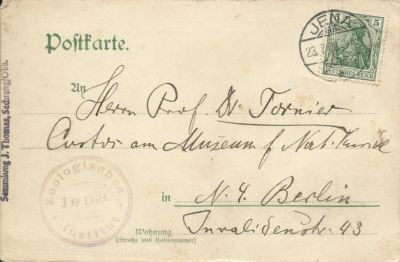 Postkarte.
JENA
23.
5
DEUTSCHES REICH
An
Herrn Prof Dr. Tornier
Custos am Museum f. Nat. Kunde
in N. 4. Berlin
Wohnung
(Straße und Hausnummer)
Invalidenstr. 43
Zoologisches
Jena
Institut
Sammlung J. Thomas, Sachrang/Obb.